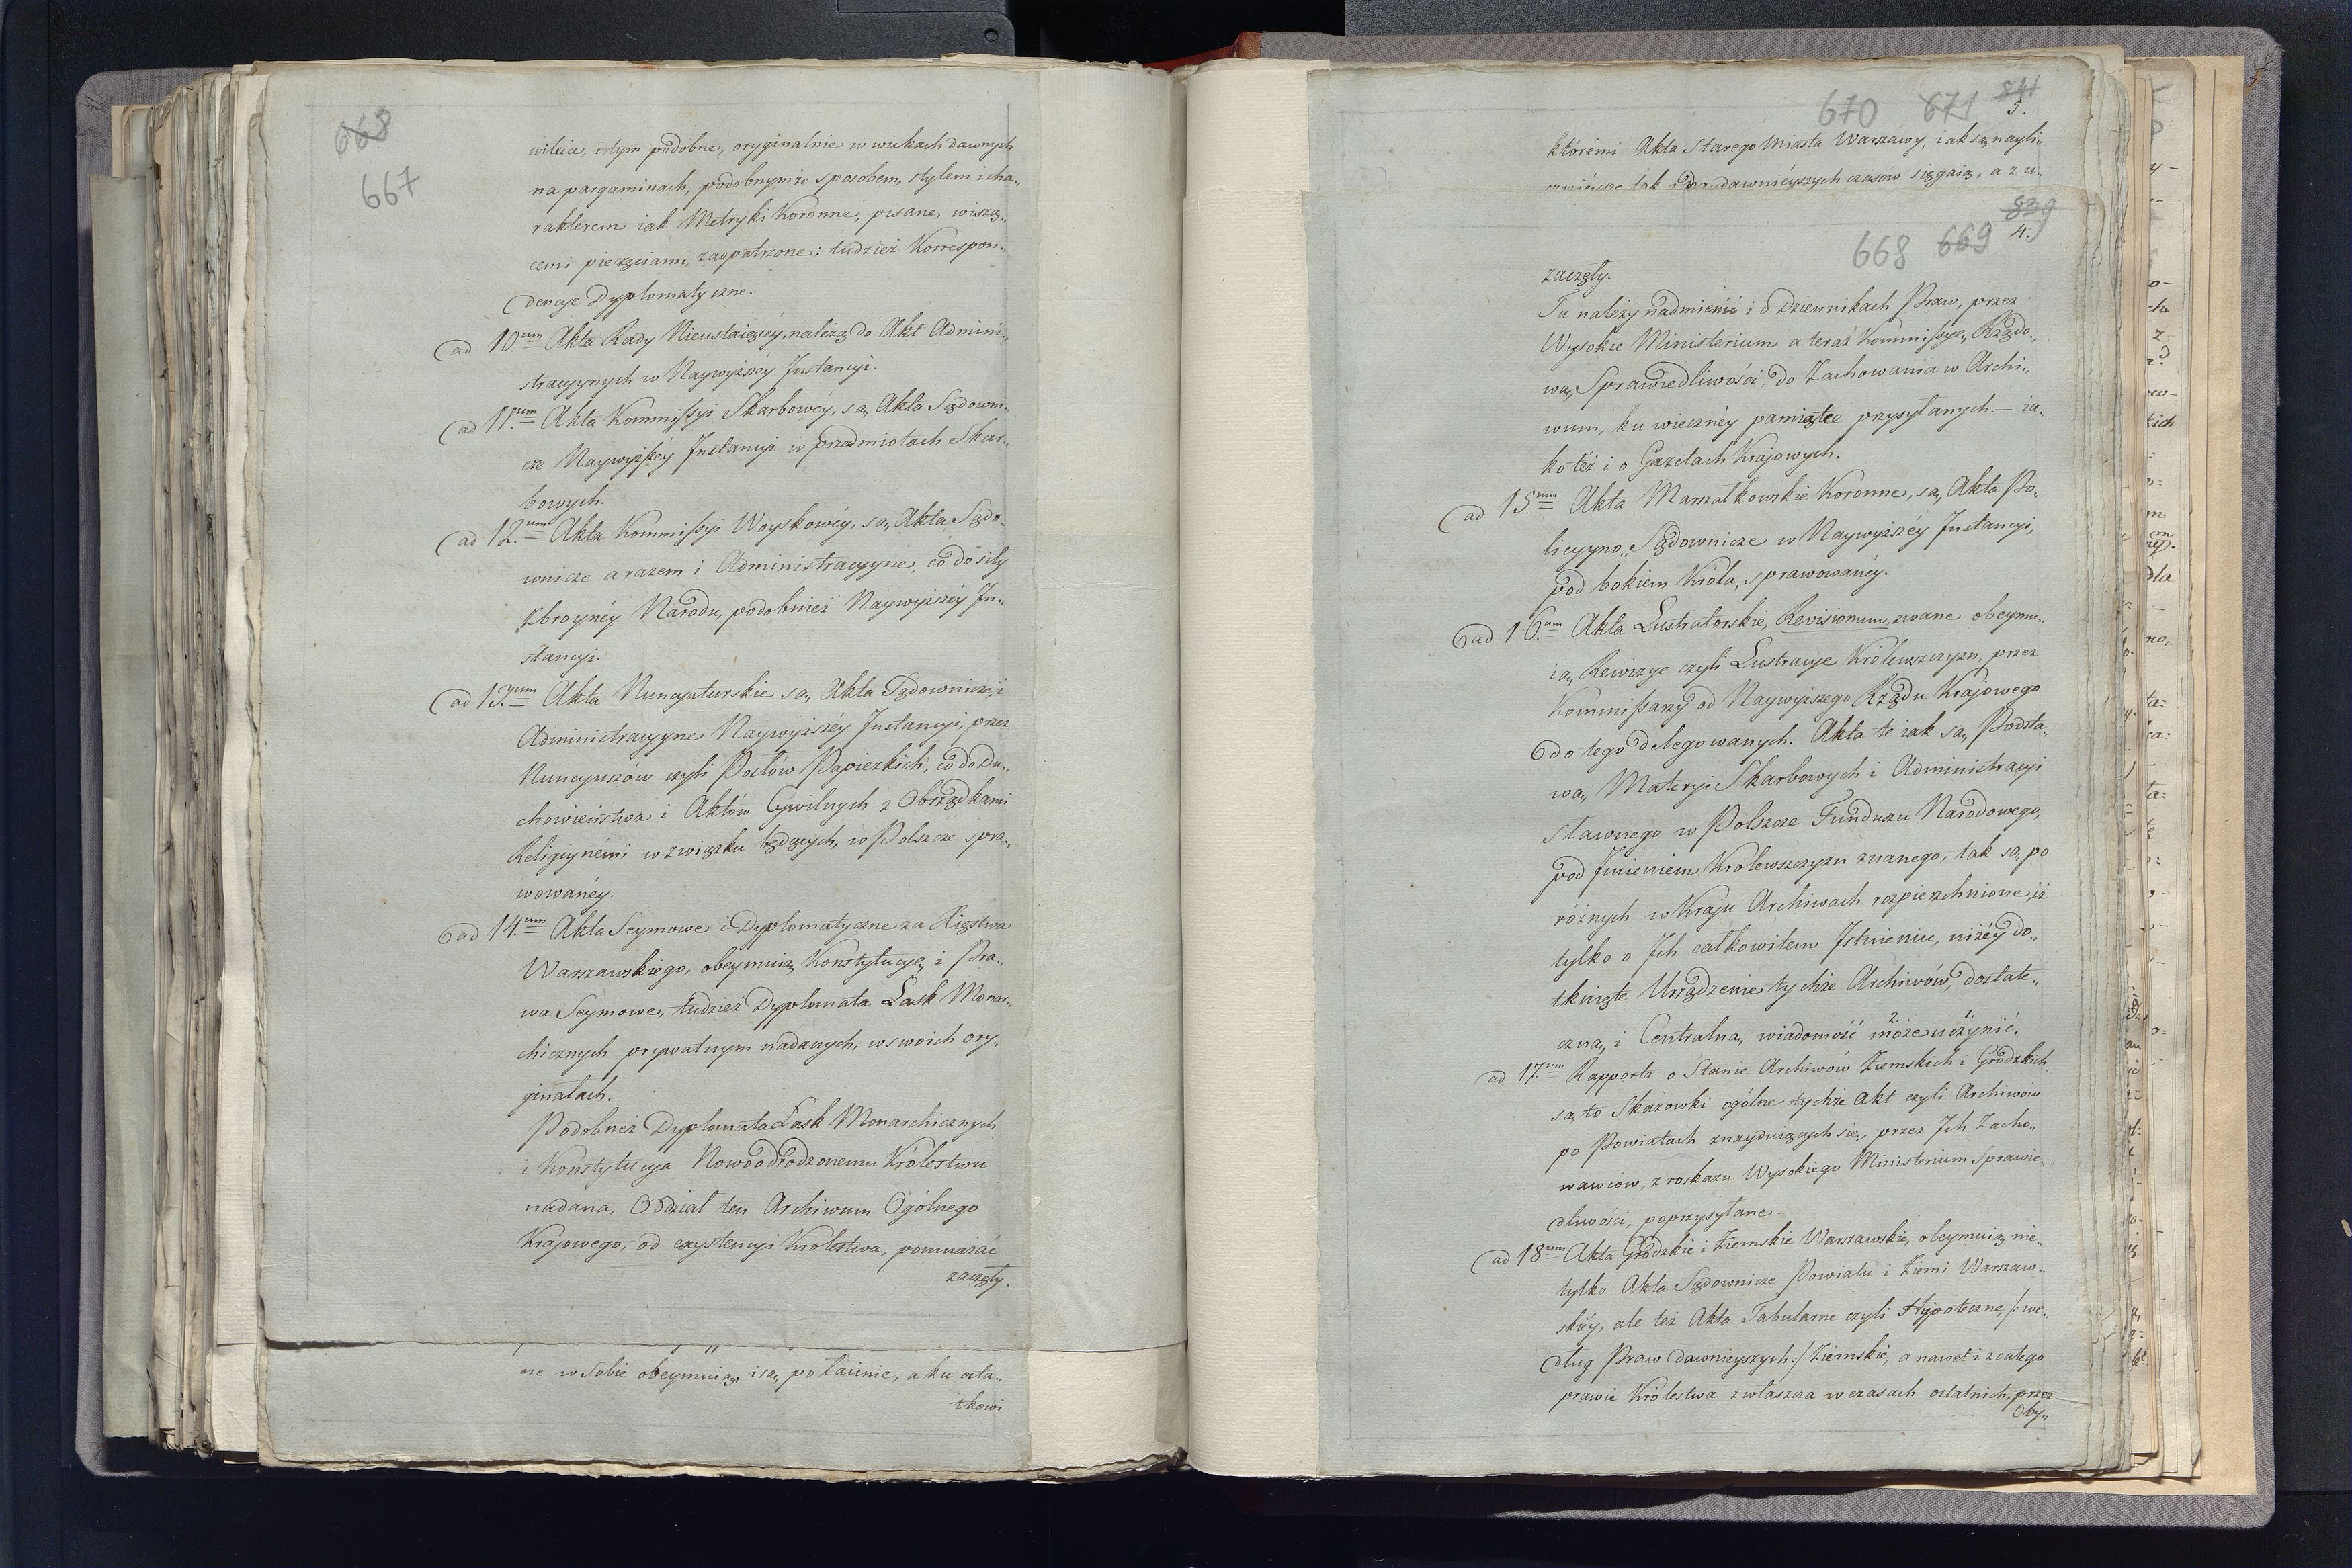 668
667
wileia, i tym podobne, oryginalnie w wiekach dawnych
na pargaminach, podobnymże sposobem, stylem i cha„
rakterem iak Metryki Koronne, pisane, wiszą„
cemi pieczęciami zaopatrzone; tudzież Korrespon„
dencye Dyplomatyczne.
ad 10.um Akta Rady Nieustaiącéy, należą do Akt Admini„
stracyynych w Naywyższéy Instancyi.
ad 11.um Akta Kommissyi Skarbowéy, są, Akta Sądowni„
cze Naywyższéy Instancyi w przedmiotach Skar„
bowych.
ad 12.um Akta Kommissyi Woyskowéy, są, Akta Sądo„
wnicze a razem i Administracyyne, co do siły
Zbroynéy Narodu, podobnież Naywyższéy In„
stancyi.
ad 13.um Akta Nuncyaturskie są, Akta Sądownicze, i
Administracyyne Naywyższéy Instancyi, przez
Nuncyuszów czyli Posłów Papiezkich, co do Du„
chowieństwa i Aktów Cywilnych z Obrządkami
Religiynémi w związku będących, w Polszcze spra„
wowanéy.
ad 14.um Akta Seymowe i Dyplomatyczne za Xięstwa
Warszawskiego, obeymuią, Konstytucyą, i Pra„
wa Seymowe, tudzież Dyplomata Łask Monar„
chicznych prywatnym nadanych, w swoich ory„
ginałach.
Podobnież Dyplomata Łask Monarchicznych
i Konstytucya Nowoodrodzonemu Królestwu
nadana, Oddział ten Archiwum Ogólnego
Krajowego, od exystencyi Królestwa, pomnażać
zaczęły.
ne w Sobie obeymuią, i są, po łacinie, a ku osta„
tkowi
670 671 841
5.
którémi Akta Starego Miasta Warszawy, iak są, nayli„
cznieysze tak i Naydawnieyszych czasow sięgaią, a z u„
839
668 669 4.
zaczęły.
Tu należy nadmienić i o Dziennikach Praw, przez
Wysokie Ministerium a teraz Kommissyą, Rządo„
wą, Sprawiedliwości, do Zachowania w Archi„
wum, ku wiecznéy pamiątce przysyłanych – ia„
ko téż i o Gazetach Krajowych.
ad 15.um Akta Marszałkowskie Koronne, są, Akta Po„
licyyno„Sądownicze w Naywyższéy Instancyi,
pod bokiem Króla, sprawowanéy.
ad 16.um Akta Lustratorskie, Revisionum, zwane obeymu„
ią, Rewizye czyli Lustracye Królewszczyzn, przez
Kommissarzy od Naywyższego Rządu Krajowego
do tego delegowanych. Akta te iak są, Podsta„
wą, Materyi Skarbowych i Administracyi
Sławnego w Polszcze Funduszu Narodowego,
pod Imieniem Królewszczyzn znanego, tak są, po
różnych w Kraju Archiwach rozpierzchnione, iż
tylko o Ich całkowitem Istnieniu, niżéy do„
tknięte Urządzenie tychże Archiwów, dostate„
czną, i Centralną, wiadomość może 2. uczynić 1.
ad 17.um Rapporta o Stanie Archiwów Ziemskich i Grodzkich,
są, to Skazowki ogólne tychże Akt czyli Archiwów
po Powiatach znayduiących się, przez Ich Zacho„
wawców, z roskazu Wysokiego Ministerium Sprawie„
dliwości, poprzysyłane.
ad 18.um Akta Grodzkie i Ziemskie Warszawskie, obeymuią, nie„
tylko Akta Sądownicze Powiatu i Ziemi Warszaw„
skiéy, ale też Akta Tabularne czyli Hypoteczne /: we„
dług Praw dawnieyszych :/ Ziemskie, a nawet i z całego
prawie Królestwa zwłaszcza w czasach ostatnich, przez
Oby„